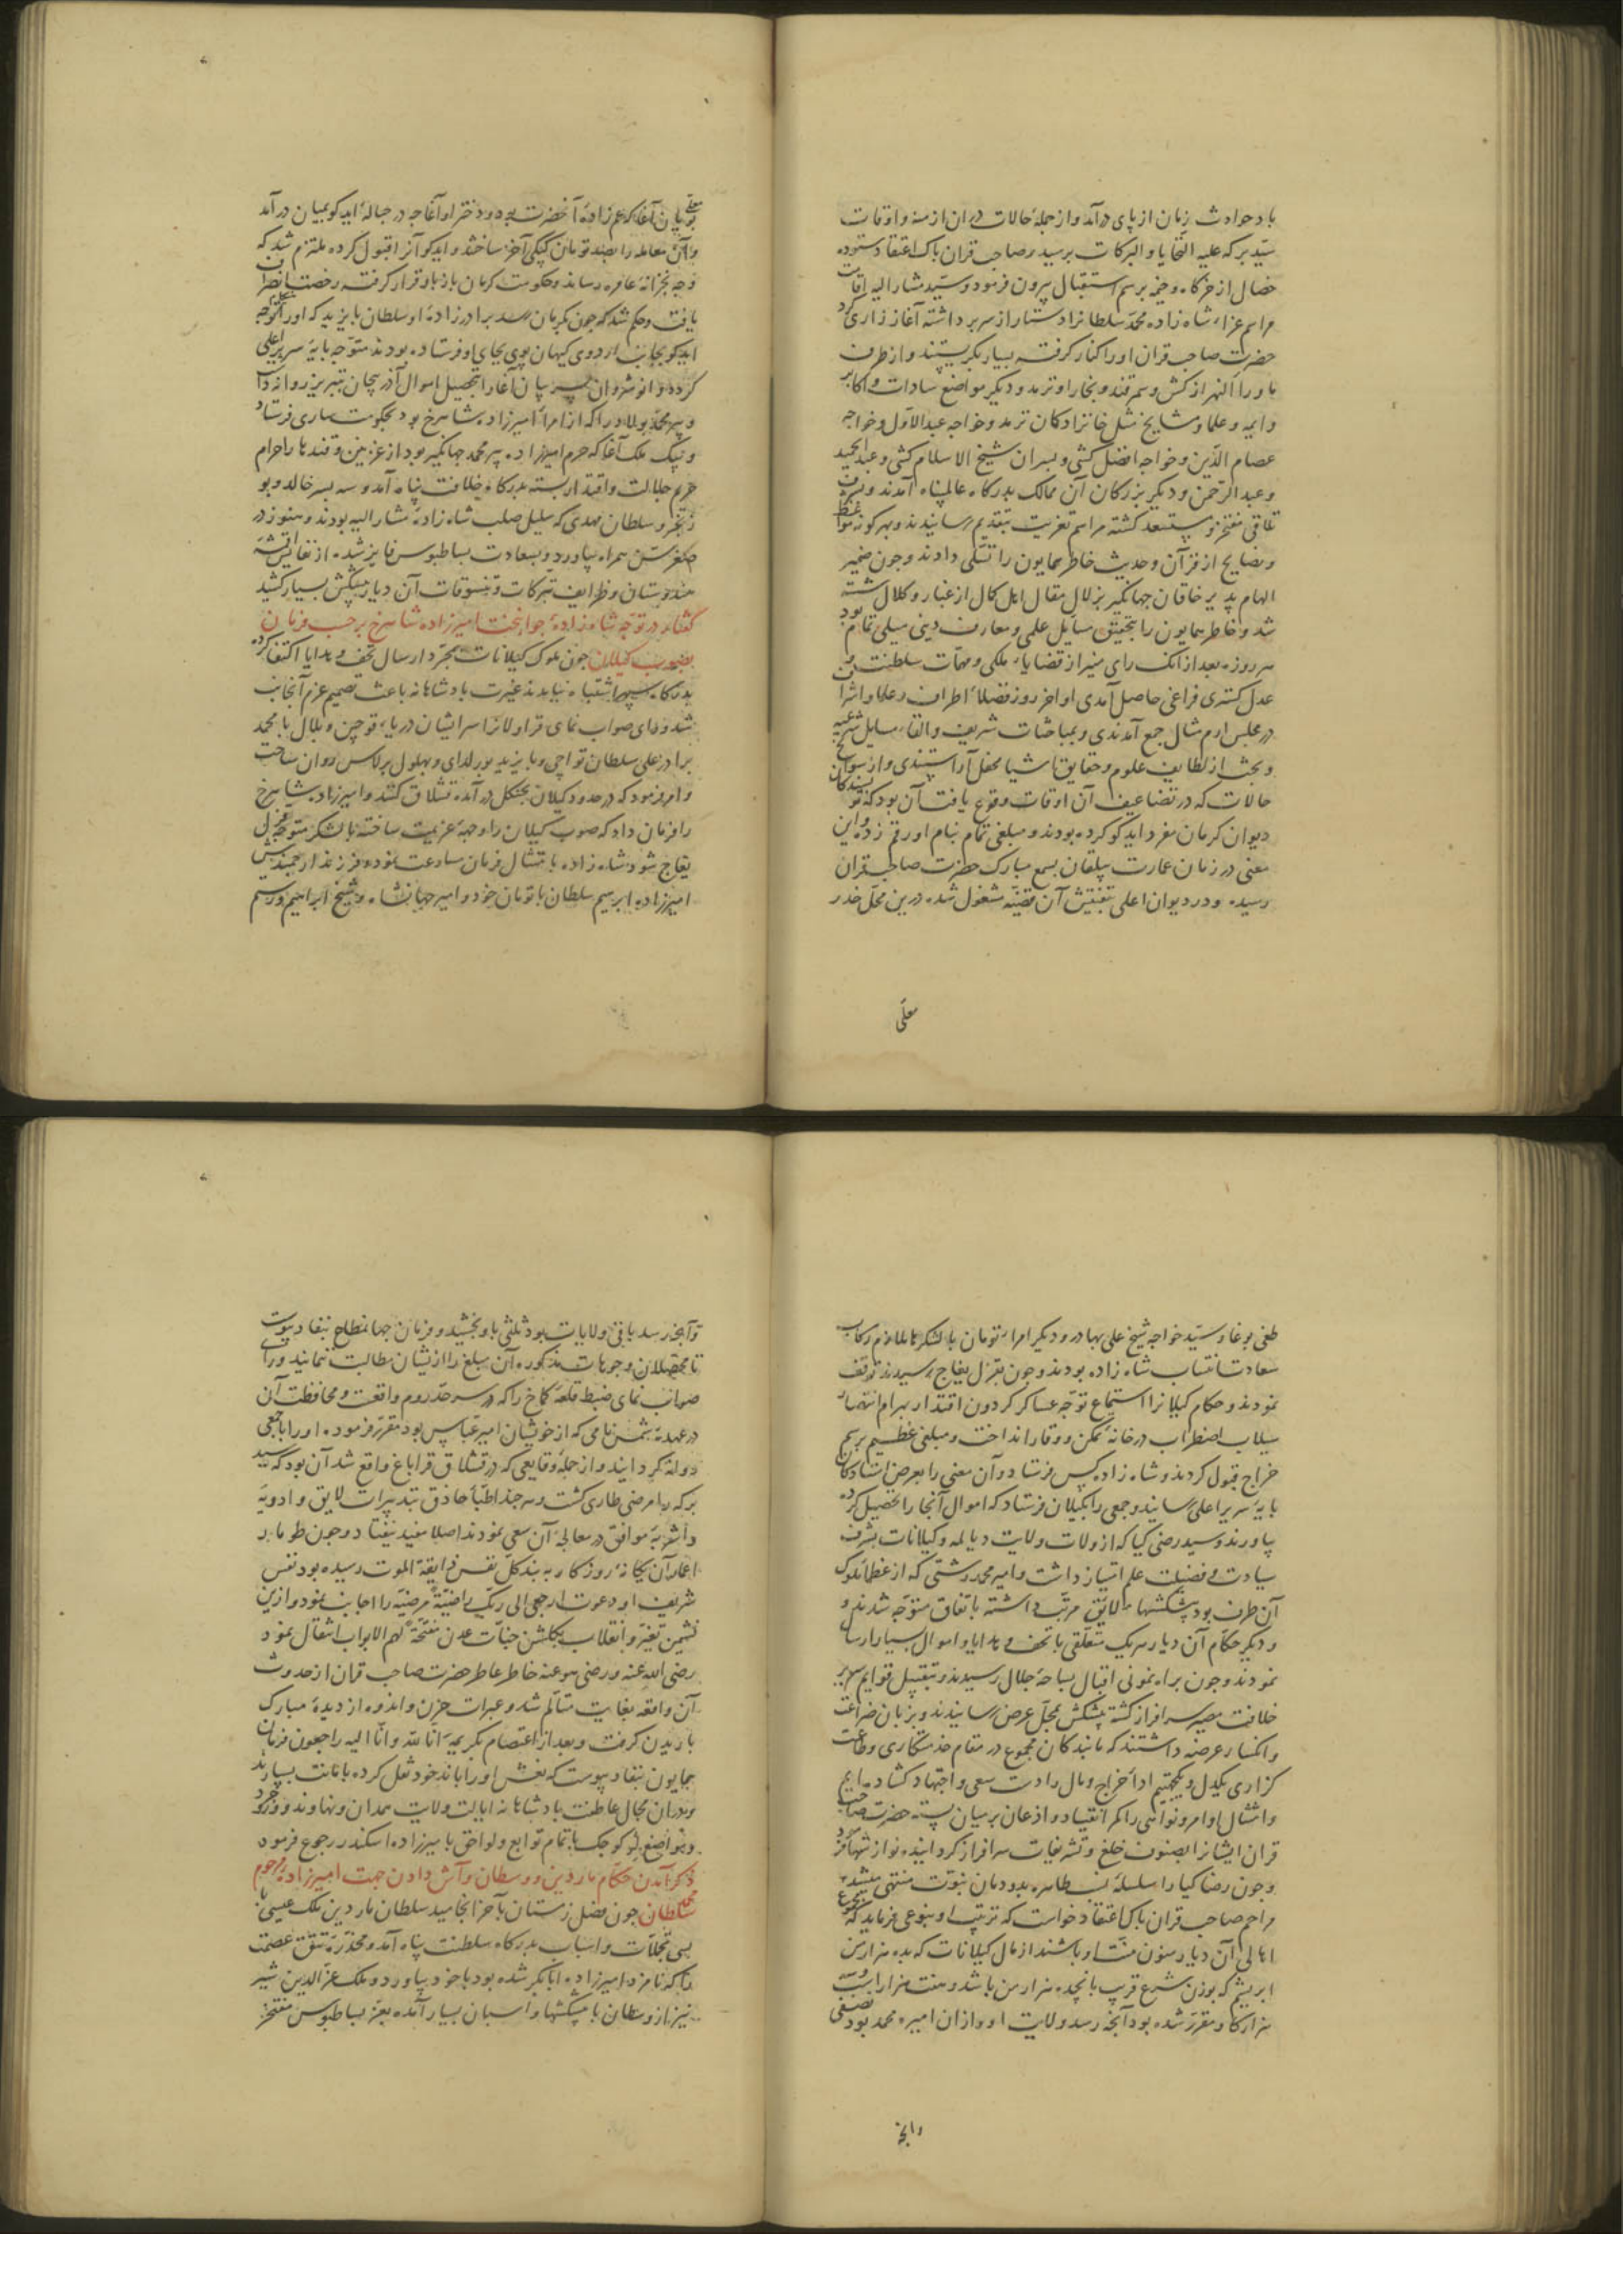 باد حوادث زمان از پای درآمد و از جمله حالات در ان ازمنه و اوقات
سید برکه علیه التحایا و البرکات برسید و صاحب قران پاک اعتقاد ستوده
خصال از خرکاه و خیمه برسم استقبال بیرون فرمود و سید مشار الیه اقامت
مراسم عزاء شاه زاده محمد سلطانرا دستار از سر برداشته آغاز زاری کرد
حضرت صاحب قران او را کنار کرفته بسیار بکریستند و از طرف
ماوراء النهر از کش و سمرقند و بخارا و ترمد و دیکر مواضع سادات و اکابر
و ایمه و علما و مشایخ مثل خانزادکان ترمد و خواجه عبد الاول و خواجه
عصام الدین و خواجه افضل کشی و پسران شیخ الاسلام کشی و عبد الحمید
و عبد الرحمن و دیکر بزرکان آن ممالک بدرکاه عالم پناه آمدند و بشرف
تلاقی مفتخر و مستسعد کشته مراسم تعزیت بتقدیم رسانیدند و بهر کونه مواعظ
و نصایح از قرآن و حدیث خاطر همایون را تسلی دادند و چون ضمیر
الهام پذیر خاقان جهانکیر بزلال مقال اهل کمال از غبار و کلال شسته
شد و خاطر همایون را بتحقیق مسایل علمی و معارف دینی میلی تمام بود
هر روزه بعد از انک رای منیر از قضایاء ملکی و مهمات سلطنت و
عدل کستری فراغی حاصل آمدی اواخر روز فضلاء اطراف و علما و اشراف
در مجلس ارم مثال جمع آمدندی و بمباحثات شریف و القاء مسایل شرعیه
و بحث از لطایف علوم و حقایق اشیا محفل آراستندی و از سوانح
حالات که در تضاعیف آن اوقات وقوع یافت آن بود که نویسندکان
دیوان کرمان مفرد ایدکو کرده بودند و مبلغی تمام بنام او رقم زده و این
معنی در زمان عمارت بیلقان بسمع مبارک حضرت صاحب قران
رسیده و در دیوان اعلی بتفتیش آن قضیه مشغول شده درین محل خدر
معلی
معلی بویان آغا که عم زاده آنحضرت بود و دختر او آغاجه در حباله ایدکو بمیان درآمد
و آن معامله را بصد تومان کپکی آخر ساختند و ایدکو آنرا قبول کرده ملتزم شد که
وجه بخزانه عامره رساند و حکومت کرمان باز باو قرار کرفت و رخصت انصراف
یافت و حکم شد که چون بکرمان رسد برادر زاده او سلطان بایزید که او را متوجه
ایدکو بجانب اردوی کیهان پوی بجای او فرستاده بودند متوجه پایه سریر اعلی
کردد و انوشروان پسر بیان آغا را بتحصیل اموال آذربیجان بتبریز روان داشت
و پیر محمد پولاد را که از امراء امیرزاده شاهرخ بود بحکومت ساری فرستاد
و بیک ملک آغا که حرم امیرزاده پیر محمد جهانکیر بود از غزنین و قندهار احرام
حریم جلالت و اقتدار بسته بدرکاه خلافت پناه آمد و سه پسر خالد و بو
زنجر و سلطان مهدی که سلیل صلب شاه زاده مشار الیه بودند و هنوز در
صغر سن همراه بیاورد و بسعادت بساط بوس فایز شده از نفایس اقمشه
هندوستان و ظرایف تبرکات و تنسوقات آن دیار پیشکش بسیار کشید
کفتار در توجه شاه زاده جوانبخت امیرزاده شاهرخ برحسب فرمان
بصوب کیلان چون ملوک کیلانات بمجرد ارسال تحف و هدایا اکتفا کرده
بدرکاه سپهر اشتباه نیامدند غیرت بادشاهانه باعث تصمیم عزم آنجانب
شد و رای صواب نمای قراولانرا سر ایشان دریاء قوچین و بلال با محمد
برادر علی سلطان تواچی و بایزید بورلدای و بهلول برلاس روان ساخت
و امر فرمود که در حدود کیلان بجنکل درآمده قشلاق کنند و امیرزاده شاهرخ
را فرمان داد که صوب کیلان را وجهه عزیمت ساخته با لشکر متوجه قزل
یغاج شود شاه زاده بامتثال فرمان مسارعت نمود و فرزند ارجمندش
امیرزاده ابرهیم سلطان با تومان خود و امیر جهانشاه و شیخ ابراهیم و رستم
طغی بوغا و سید خواجه شیخ علی بهادر و دیکر امراء تومان با لشکرها ملازم رکاب
سعادت انتساب شاه زاده بودند و چون بقزل یغاج رسیدند توقف
نمودند و حکام کیلانرا استماع توجه عساکر کردون اقتدار بهرام انتصار
سیلاب اضطراب در خانه تمکن و وقار انداخت و مبلغی عظیم برسم
خراج قبول کردند و شاه زاده کس فرستاد و آن معنی را بعرض استادکان
پایه سریر اعلی رسانید و جمعی را بکیلان فرستاد که اموال آنجا را تحصیل کرده
بیاورند و سید رضی کیا که از ولات ولایت دیالمه و کیلانات بشرف
سیادت و فضیلت علم امتیاز داشت و امیر محمد رشتی که از عظماء ملوک
آن طرف بود پیشکشهاء لایق مرتب داشته باتفاق متوجه شدند و
و دیکر حکام آن دیار هریک متعلقی با تحف و هدایا و اموال بسیار ارسال
نمودند و چون براه نمونی اقبال بساحه جلال رسیدند و بتقبیل قوایم سریر
خلافت مصیر سرافراز کشته پیشکش بمحل عرض رسانیدند و بزبان ضراعت
و انکسار عرضه داشتند که ما بندکان مجموع در مقام خدمتکاری و طاعت
کزاری یکدل و یکجهتیم اداء خراج و مال را دست سعی و اجتهاد کشاده ایم
و امتثال اوامر و نواهی را کمر انقیاد و اذعان بر میان بسته حضرت صاحب
قران ایشانرا بصنوف خلع و تشریفات سرافراز کردانیده نوازشها فرمود
و چون رضا کیا را سلسله نسب طاهره بدودمان نبوت منتهی میشد
مراحم صاحب قران پاک اعتقاد خواست که تربیت او بنوعی فرماید که مجموع
اهالی آن دیار مرهون منت او باشند از مال کیلانات که بده هزار من
ابریشم که بوزن شرع قریب پانجده هزار من باشد و هفت هزار اسب و سه
هزار کاو مقرر شده بود آنچه رسد ولایت او و ازان امیره محمد بود نصفی
و آنچه
و آنچه رسد باقی ولایات بود ثلثی باو بخشید و فرمان جهانمطاع بنفاد پیوست
تا محصلان وجوهات مذکوره آن مبلغ را از ایشان مطالبت ننمایند و رای
صواب نمای ضبط قلعه کماخ را که در سرحد روم واقعست و محافظت آن
در عهده شمس نامی که از خویشان امیر عباس بود مقرر فرمود و او را با جمعی
روانه کردانید و از جمله وقایعی که در قشلاق قراباغ واقع شد آن بود که سید
برکه را مرضی طاری کشت و هر چند اطباء حاذق بتدبیرات لایق و ادویه
و اشربه موافق در معالجه آن سعی نمودند اصلا مفید نیفتاد و چون طومار
اعمار آن یکانه روزکار به بند کل نفس ذایقة الموت رسیده بود نفس
شریف او دعوت ارجعی الی ربک راضیة مرضیة را اجابت نمود و ازین
نشیمن تغیر و انقلاب بکلشن جنات عدن مفتحة لهم الابواب انتقال نمود
رضی الله عنه و رضی هو عنه خاطر عاطر حضرت صاحب قران از حدوث
آن واقعه بغایت متالم شد و عبرات حزن و اندوه از دیده مبارک
باریدن کرفت و بعد از اعتصام بکریمه انا لله و انا الیه راجعون فرمان
همایون بنفاد پیوست که نعش او را باندخود نقل کرده بامانت بسپارند
و دران مجال عاطفت بادشاهانه ایالت ولایت همدان و نهاوند و وروجرد
و مواضع لر کوچک با تمام توابع و لواحق بامیرزاده اسکندر رجوع فرمود
ذکر آمدن حکام ماردین و وسطان و آش دادن جهت امیرزاده مرحوم
محمد سلطان چون فصل زمستان بآخر انجامید سلطان ماردین ملک عیسی با
بسی تجملات و اسباب بدرکاه سلطنت پناه آمد و مخدره تتق عصمت
را که نامزد امیرزاده ابابکر شده بود با خود بیاورد و ملک عز الدین شیر
نیز از وسطان با پیشکشها و اسبان بسیار آمده بعز بساط بوس مفتخر